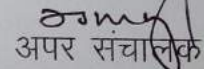 अपर संचालक